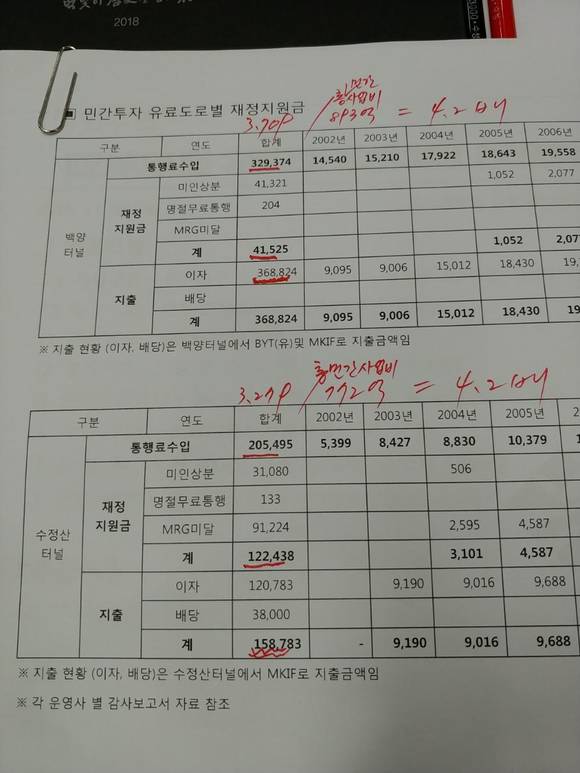 2018
■ 민간투자 유료도로별 재정지원금
3.709 / 총민간사업비 893억 = 4.2 배
구분 연도 합계 2002년 2003년 2004년 2005년 2006년
통행료수입 329,374 14,540 15,210 17,922 18,643 19,558
미인상분 41,321 1,052 2,077
재정지원금 명절무료통행 204
MRG미달
백양터널 계 41,525 1,052 2,07
이자 368,824 9,095 9,006 15,012 18,430 19,
지출 배당
계 368,824 9,095 9,006 15,012 18,430 19
※ 지출 현황 (이자, 배당)은 백양터널에서 BYT(유)및 MKIF로 지출금액임
3.279 / 총민간사업비 772억 = 4.2 배
구분 연도 합계 2002년 2003년 2004년 2005년 2
통행료수입 205,495 5,399 8,427 8,830 10,379
미인상분 31,080 506
재정지원금 명절무료통행 133
MRG미달 91,224 2,595 4,587
수정산터널 계 122,438 3,101 4,587
이자 120,783 9,190 9,016 9,688
지출 배당 38,000
계 158,783 - 9,190 9,016 9,688
※ 지출 현황 (이자, 배당)은 수정산터널에서 MKIF로 지출금액임
※ 각 운영사 별 감사보고서 자료 참조